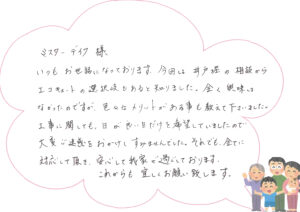 ミスターデイク 様
いつも お世話になっております。今回は 井戸堀の 相談から
エコキュートの 選択肢もあると知りました。全く 興味は
なかったのですが、色々なメリットがある事も教えて下さいました。
工事に関しても、日が 悪い日だけを 希望していましたので
大変ご迷惑を おかけし すみませんでした。それでも、全てに
対応して頂き、安心して我家が過ごしております。
これからも 宜しくお願い致します。